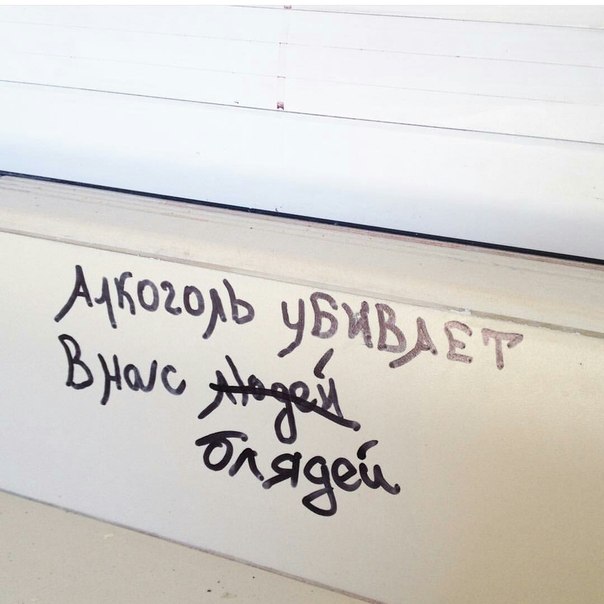 Алкоголь убивает
в нас людей
блядей